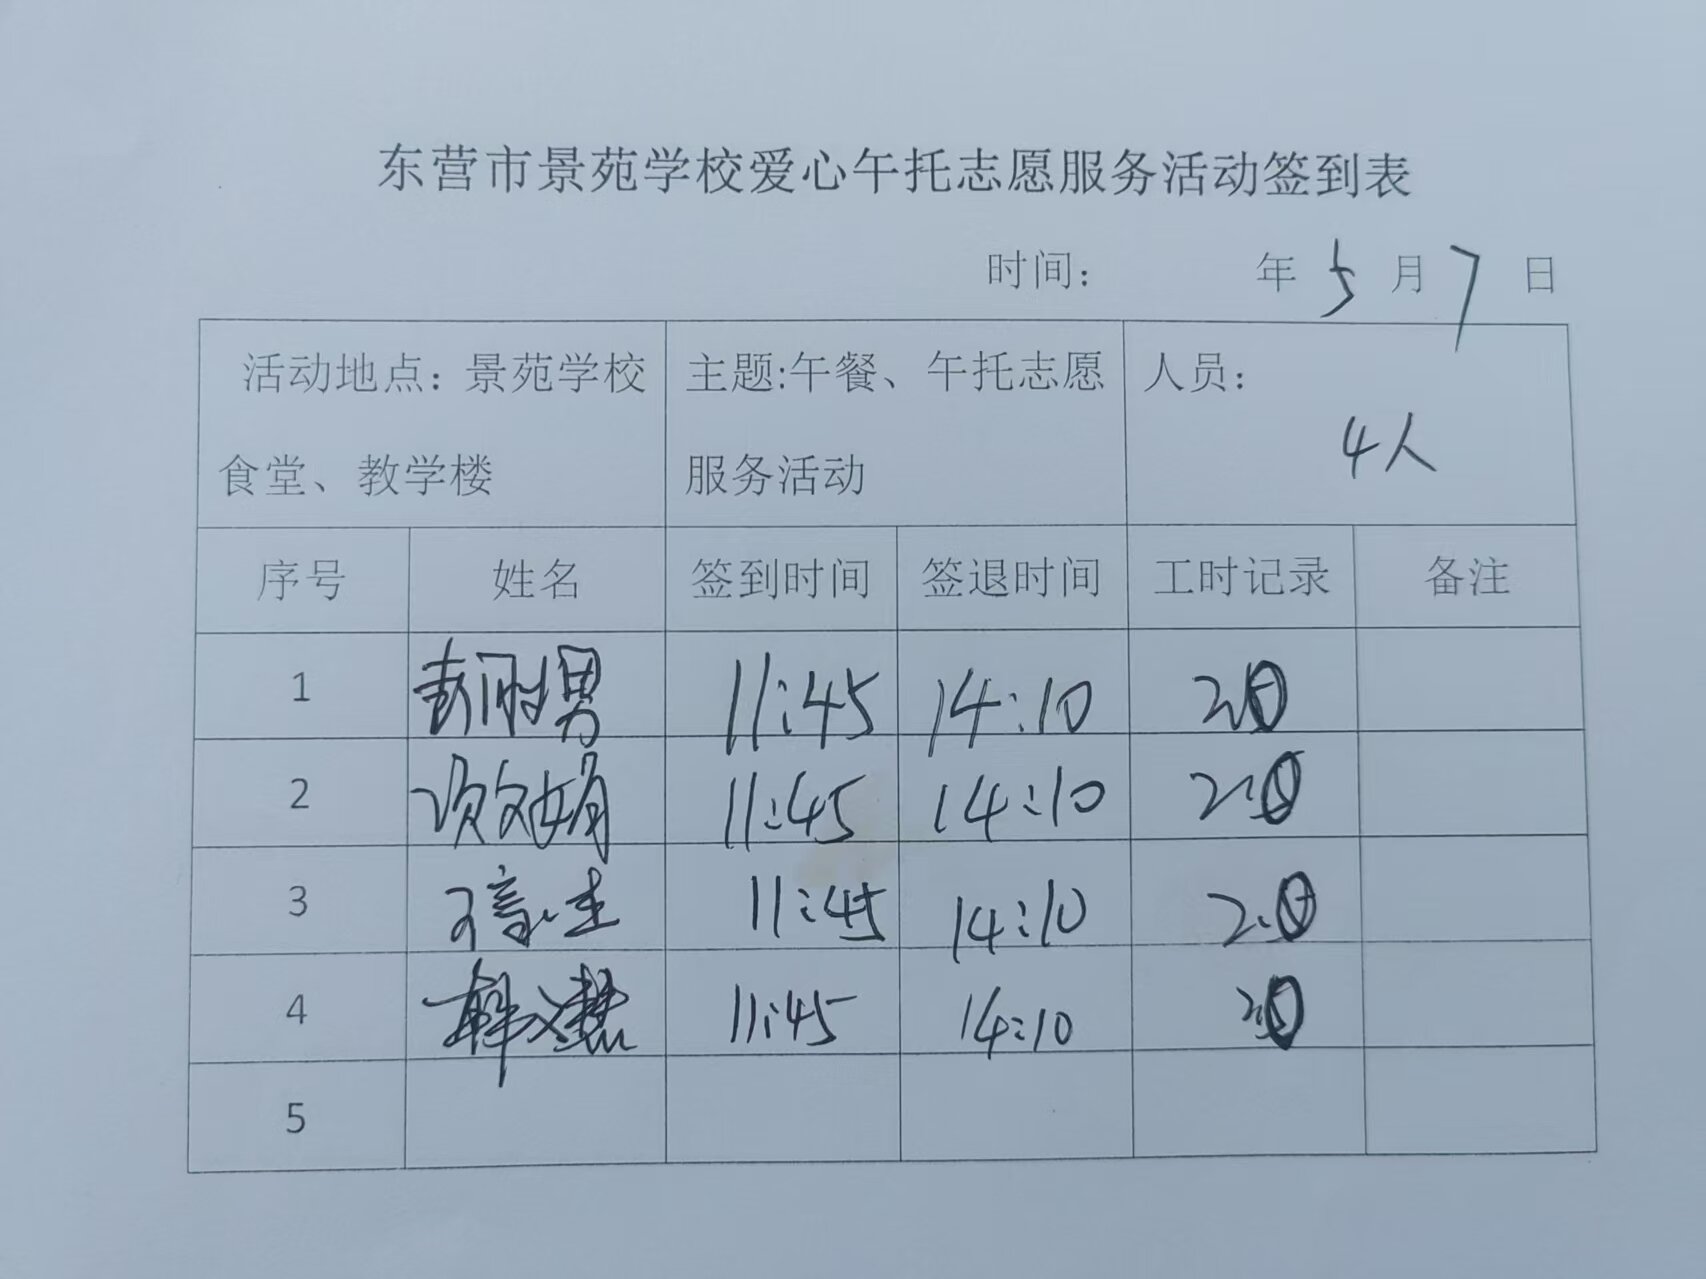 东营市景苑学校爱心午托志愿服务活动签到表
时间： 年 5 月 7 日
活动地点：景苑学校
食堂、教学楼
主题:午餐、午托志愿
服务活动
人员：
4人
序号 姓名 签到时间 签退时间 工时记录 备注
1 封丽男 11:45 14:10
2 项文娟 11:45 14:10
3 11:45 14:10
4 韩义慧 11:45 14:10
5